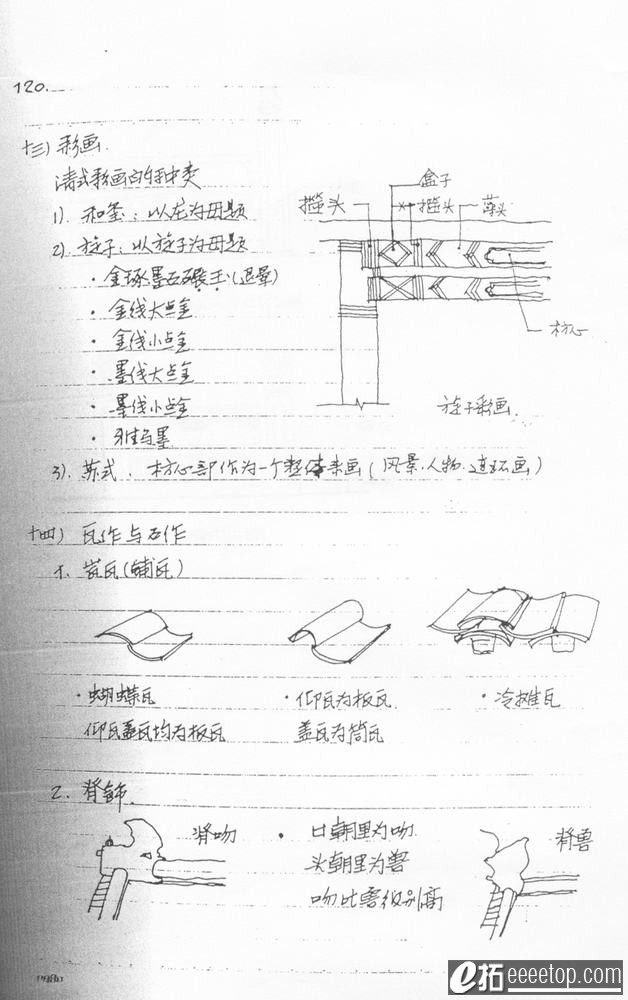 120.
十三) 彩画.
清式彩画的种类
1). 和玺：以龙为母题
2). 旋子：以旋子为母题
· 金琢墨石碾玉·(退晕)
· 金线大点金
· 金线小点金
· 墨线大点金
· 墨线小点金
· 雅乌墨
盒子
箍头
箍头
藻头
枋心
旋子彩画.
3). 苏式. 枋心部作为一个整体来画(风景.人物.连环画)
十四) 瓦作与石作
1. 瓦(铺瓦)
· 蝴蝶瓦
仰瓦盖瓦均为板瓦
· 仰瓦为板瓦
盖瓦为筒瓦
· 冷摊瓦
2. 脊饰.
脊吻
· 口朝里为吻
头朝里为兽
吻比兽级别高
脊兽
e拓 eeeetop.com